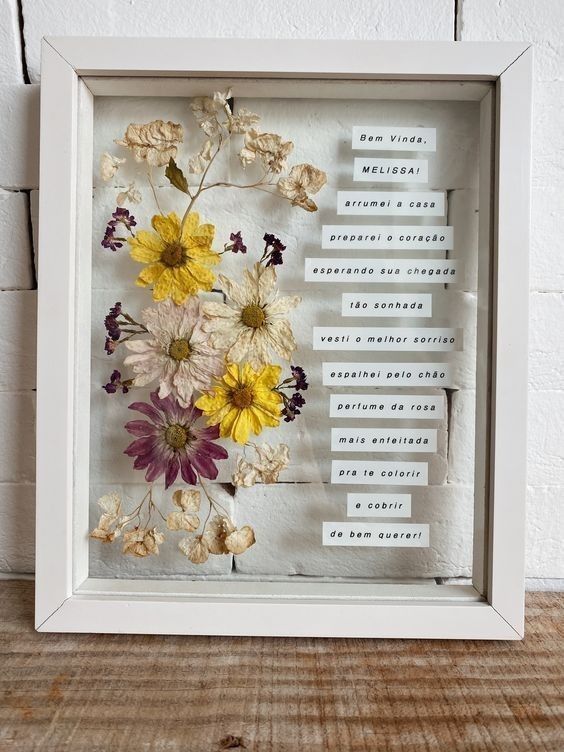 Bem Vinda,
MELISSA!
arrumei a casa
preparei o coração
esperando sua chegada
tão sonhada
vesti o melhor sorriso
espalhei pelo chão
perfume da rosa
mais enfeitada
pra te colorir
e cobrir
de bem querer!